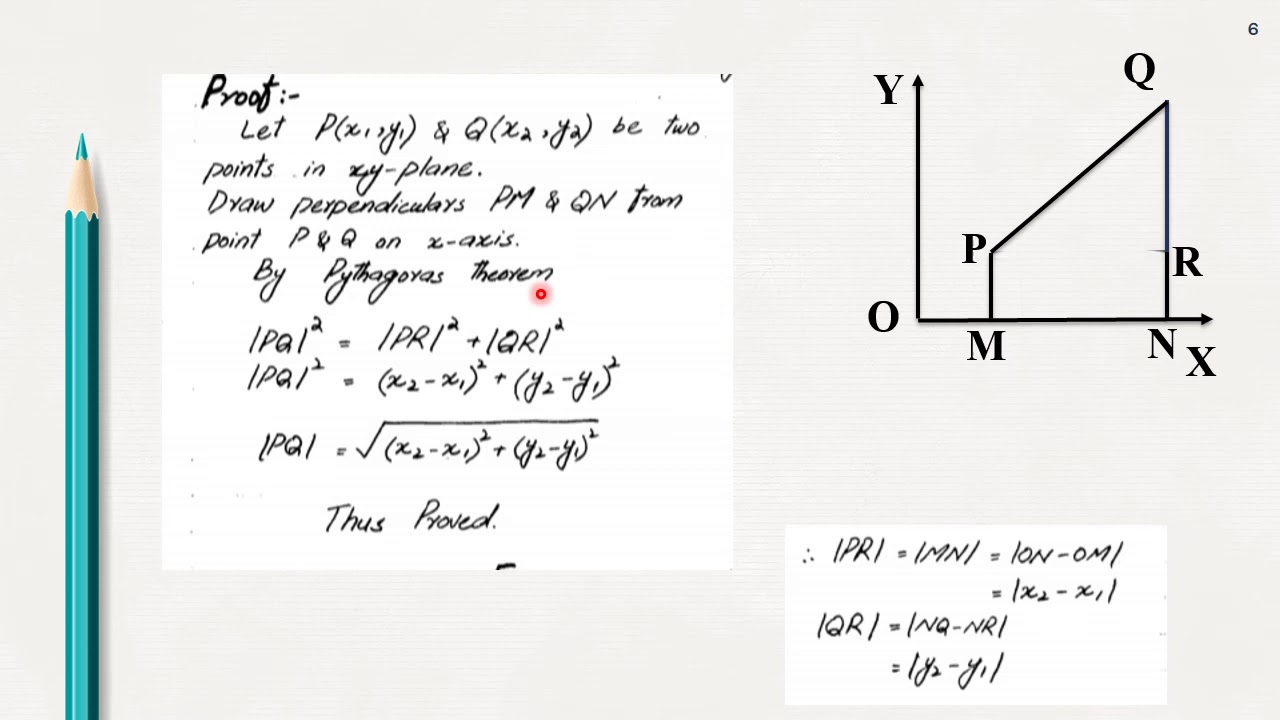 6
Proof:-
Let P(x₁,y₁) & Q(x₂,y₂) be two
points in xy-plane.
Draw perpendiculars PM & QN from
point P & Q on x-axis.
By Pythagoras Theorem
|PQ|² = |PR|² + |QR|²
|PQ|² = (x₂-x₁)² + (y₂-y₁)²
|PQ| = √(x₂-x₁)² + (y₂-y₁)²
Thus Proved.
Y
Q
P
R
O
M
N
X
∴ |PR| = |MN| = |ON-OM|
= |x₂-x₁|
|QR| = |NQ-NR|
= |y₂-y₁|